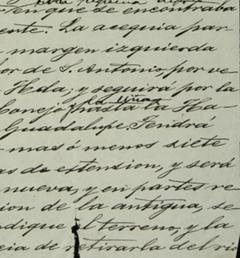 que se encontraba
ente. La acequia par-
margen izquierda
or de S. Antonio, por ve-
Hda, y seguirá por la
Conejo, hasta la Ha-
Guadalupe. Tendrá
mas ó menos siete
as de estension, y será
nueva, y en partes re
ion de la antigua, se
ndique el terreno, y la
cia de retirarla del rio